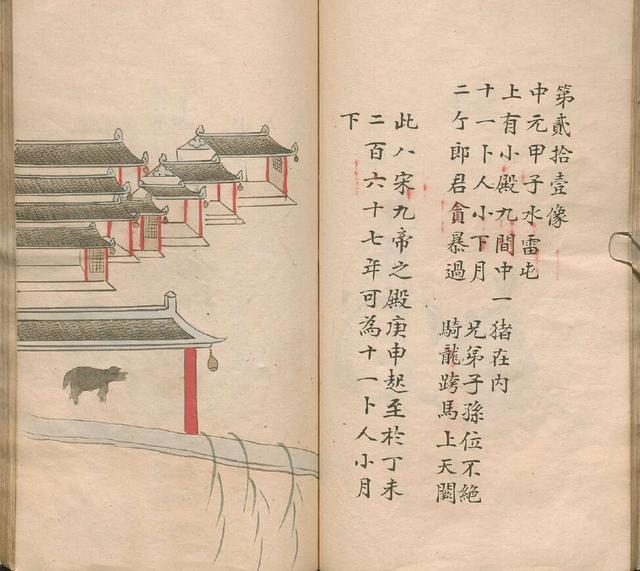 第貳拾壹像
中元甲子水雷屯
上有小殿九間中一猪在内
十一卜人小下月　兄弟子孫位不絶
二亇郎君貪暴過　騎龍跨馬上天闕
此八宋九帝之殿庚申起至於丁未
二百六十七年可為十一卜人小月
下